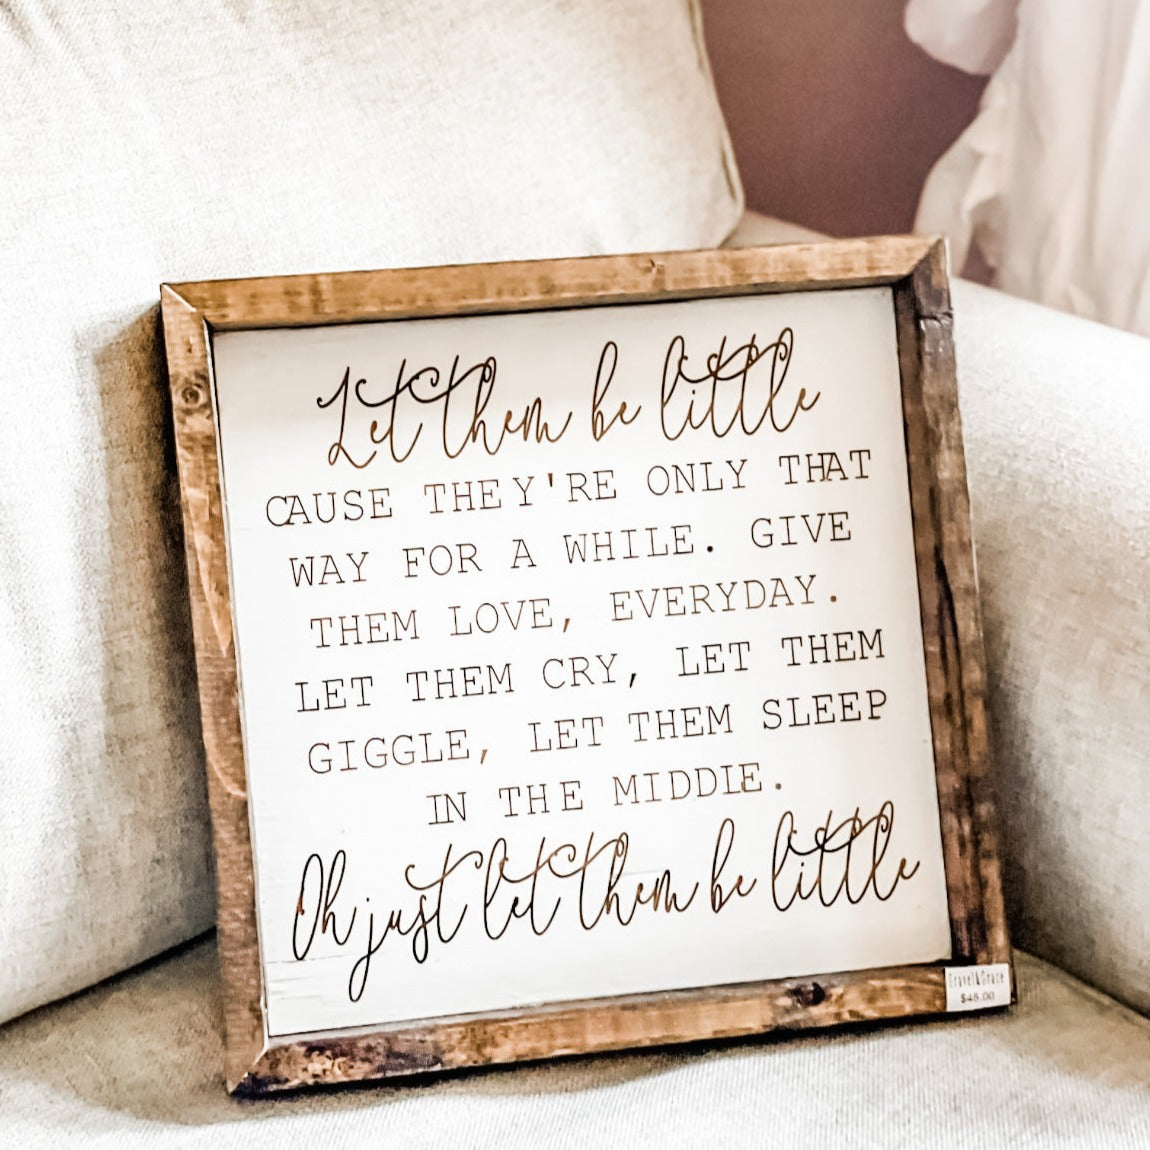 Let them be little
CAUSE THEY'RE ONLY THAT
WAY FOR A WHILE. GIVE
THEM LOVE, EVERYDAY.
LET THEM CRY, LET THEM
GIGGLE, LET THEM SLEEP
IN THE MIDDLE.
Oh just let them be little
Gravel&Grace
$48.00